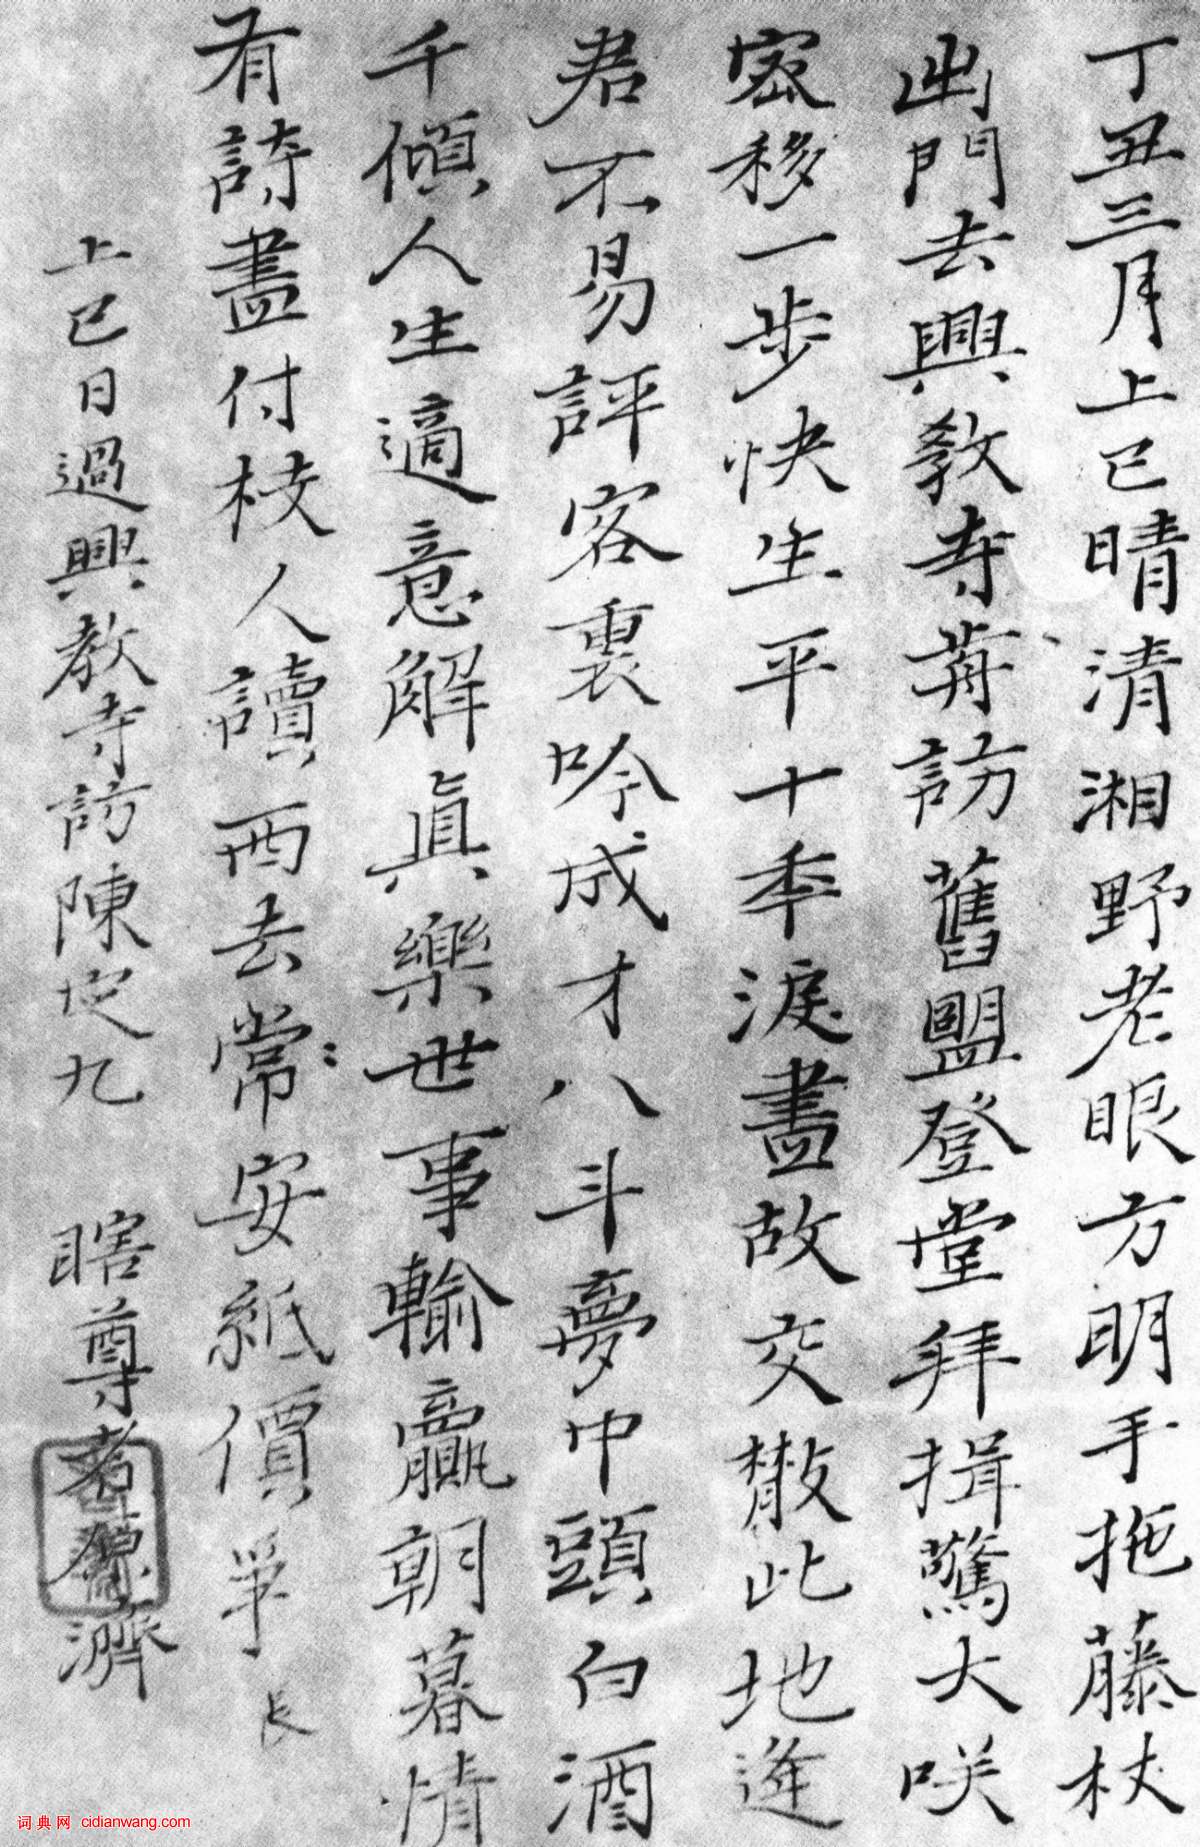 丁丑三月上巳晴清湘野老眼方明手拖藤杖
出門去興教寺前訪舊盟登堂拜揖驚大咲
密移一步快生平十季淚盡故交散此地逢
君不易評客裏吟成才八斗夢中頭白酒
千傾人生適意解真樂世事輸贏朝暮情
有詩盡付枝人讀西去常安紙價爭
長
上巳日過興教寺訪陳定九 瞎尊者原濟
词典网 cidianwang.com